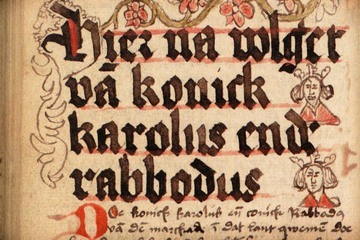 Hier na volget
vā konick
karolus ende
rabbodus
Doe konick karolus eñ conick Rabbodꝰ
vā dē marckad ī dat lant qwemē doe